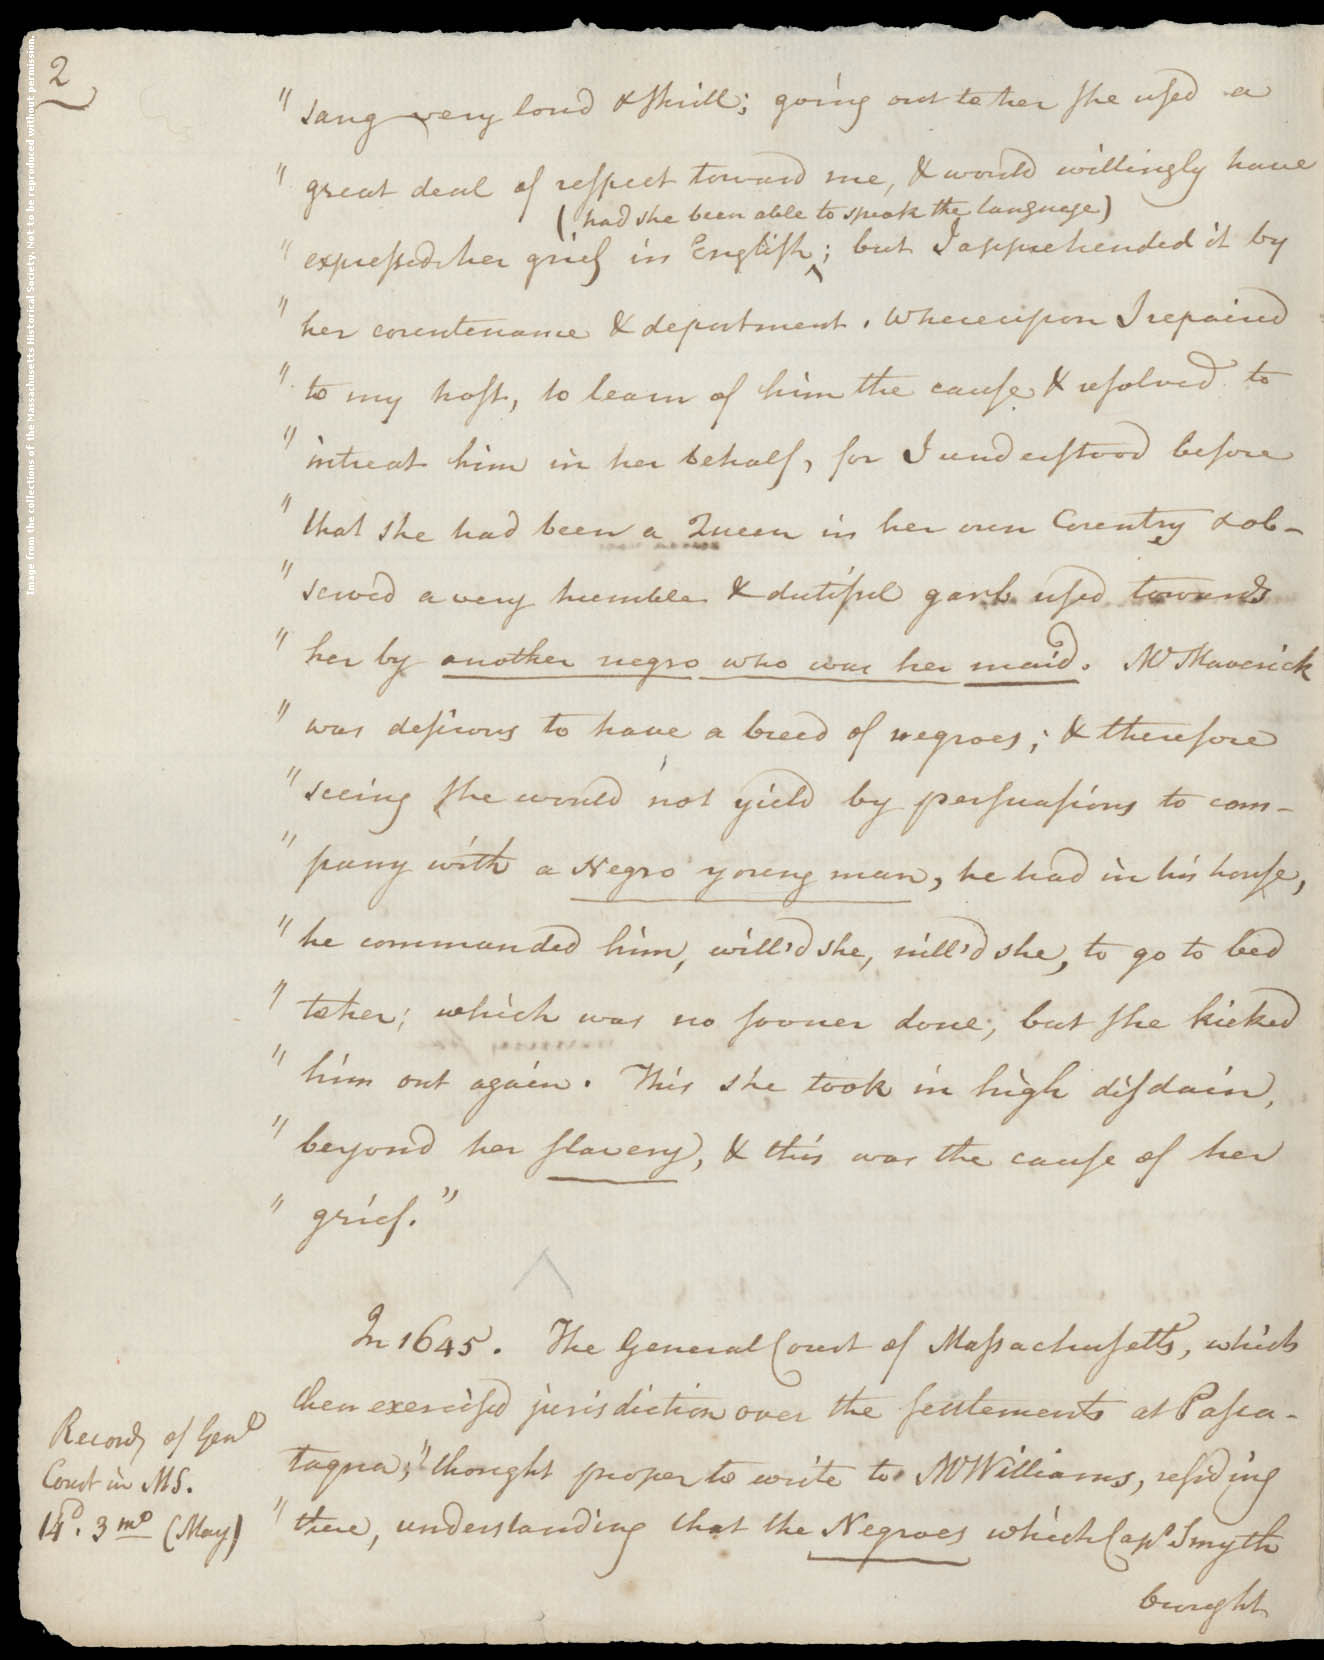 2
" sang very loud & shrill; going out to her she used a
" great deal of respect toward me, & would willingly have
(had she been able to speak the language)
" expressed her grief in English ^; but I apprehended it by
" her countenance & deportment. Whereupon I repaired
" to my host, to learn of him the cause & resolved to
" intreat him in her behalf, for I understood before
" that she had been a Queen in her own Country & ob-
" served a very humble & dutiful garb used towards
" her by another negro who was her maid. Mr Maverick
" was desirous to have a breed of negroes; & therefore
" seeing she would not yield by persuasions to com-
" pany with a Negro young man, he had in his house,
" he commanded him, will'd she, nill'd she, to go to bed
" to her; which was no sooner done, but she kicked
" him out again. This she took in high disdain,
" beyond her slavery, & this was the cause of her
" grief."
In 1645. The General Court of Massachusetts, which
then exercised jurisdiction over the settlements at Pasca-
taqua; "thought proper to write to Mr Williams, residing
" there, understanding that the Negroes which Capt Smyth
bought
Records of Genl
Court in MS.
14d. 3 mo (May)
Image from the collections of the Massachusetts Historical Society. Not to be reproduced without permission.